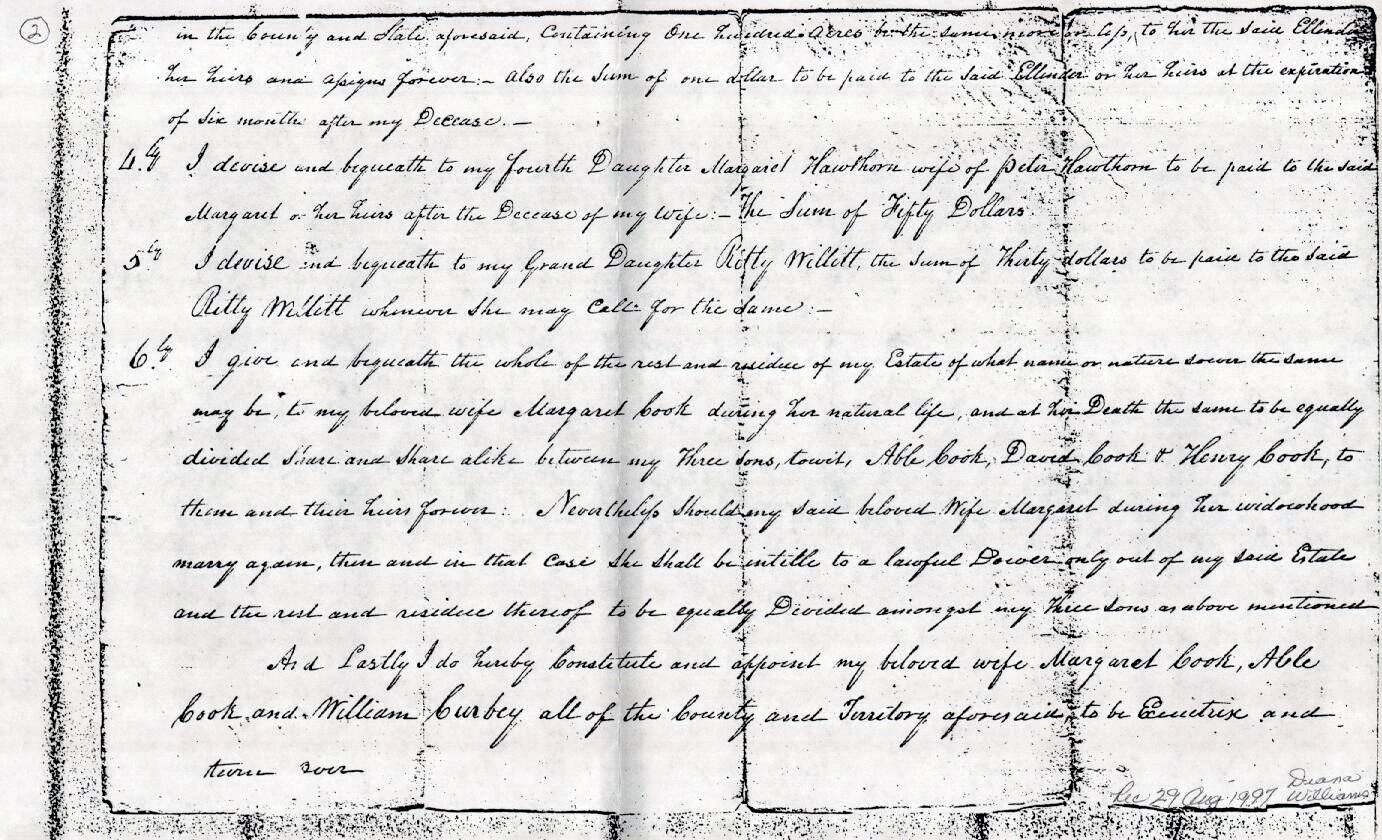 2
in the County and State aforesaid, Containing One hundred Acres be the same more or less, to her the said Ellender
her heirs and assigns forever :- Also the Sum of one dollar to be paid to the said Ellender or her heirs at the expiration
of six months after my Decease. -
4.ly I devise and bequeath to my fourth Daughter Margaret Hawthorn wife of Peter Hawthorn to be paid to the said
Margaret or her heirs after the Decease of my wife :- The Sum of Fifty Dollars
5ly I devise and bequeath to my Grand Daughter Ritty Willitt, the sum of Thirty dollars to be paid to the said
Ritty Willitt whenever she may Call for the same :-
6.ly I give and bequeath the whole of the rest and residue of my Estate of what name or nature soever the same
may be, to my beloved wife Margaret Cook during her natural life, and at her Death the same to be equally
divided share and share alike between my three sons, towit, Able Cook, David Cook & Henry Cook, to
them and their heirs forever : Nevertheless should my said beloved Wife Margaret during her widowhood
marry again, then and in that case she shall be intitle to a lawful Dower only out of my said Estate
and the rest and residue thereof to be equally Divided amongst my three sons as above mentioned
And Lastly I do hereby Constitute and appoint my beloved wife Margaret Cook, Able
Cook and William Curbey all of the County and Territory aforesaid, to be Executrix and
turn over
Rec 29 Aug 1997 Diana Williams